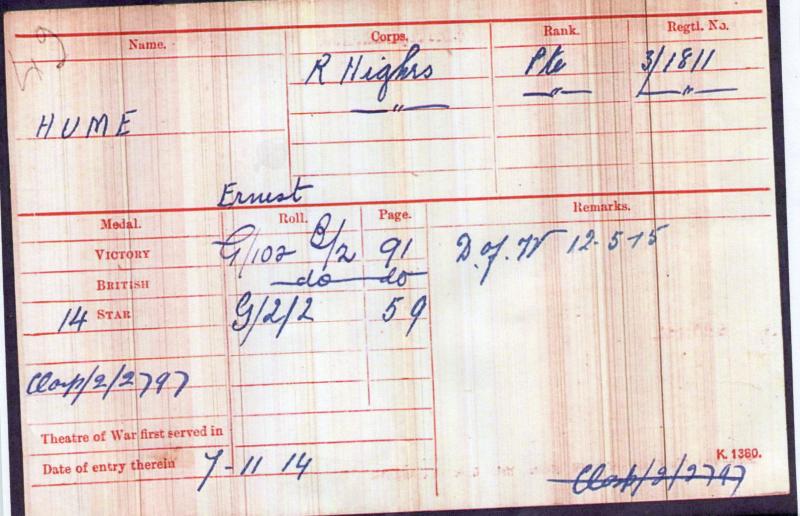 Name. Corps. Rank. Regtl. No.
R Highrs Pte 3/1811
" " "
HUME
Ernest
Medal. Roll. Page. Remarks.
VICTORY G/102 B/2 91 D. of. W 12-5-15
BRITISH do do
14 STAR G/2/2 59
Clasp/2/2797
Theatre of War first served in
Date of entry therein 7-11 14
K. 1380.
Clasp/2/2797